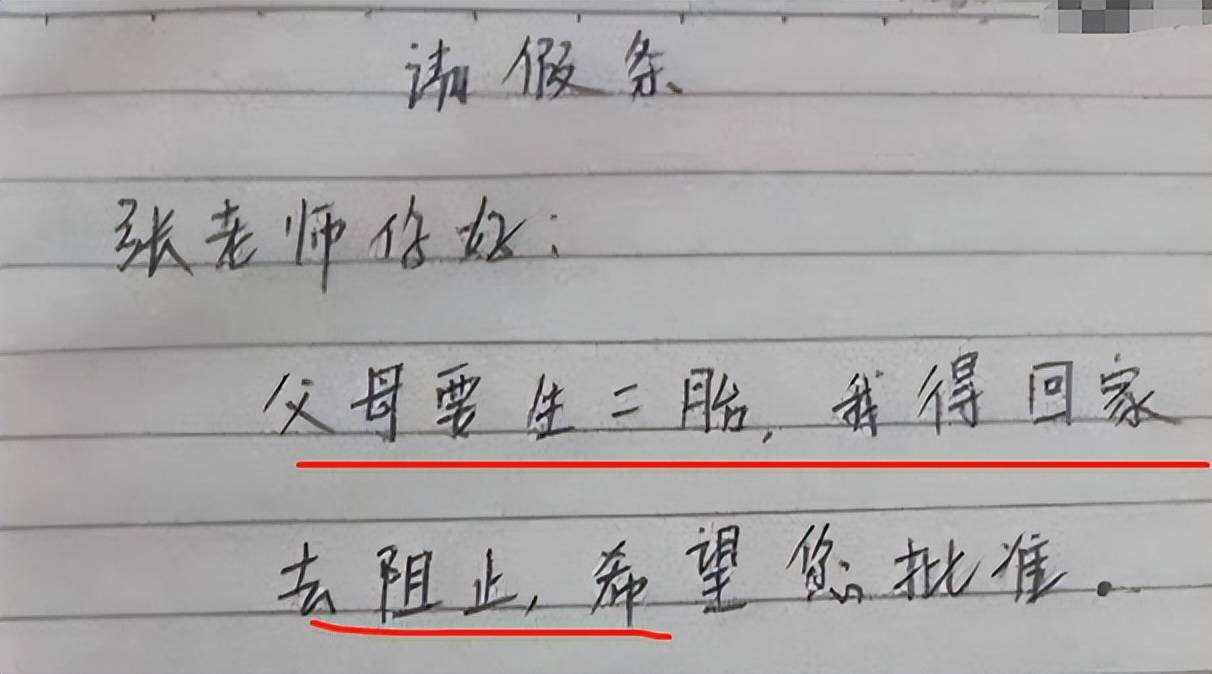 请假条
张老师你好：
父母要生二胎，我得回家
去阻止，希望您批准。